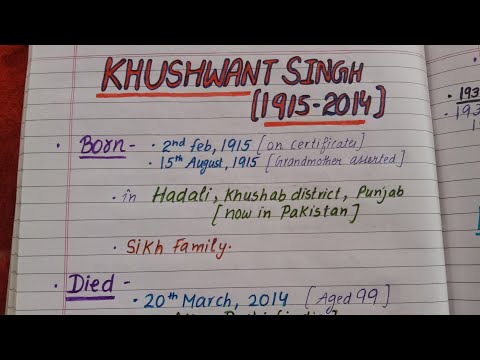 KHUSHWANT SINGH
[1915-2014]
• Born - • 2nd feb, 1915 [on certificates]
• 15th August, 1915 [Grandmother asserted]
• in Hadali, Khushab district, Punjab
[now in Pakistan]
• Sikh Family.
• Died -
• 20th March, 2014 [Aged 99]
• 193
• 193